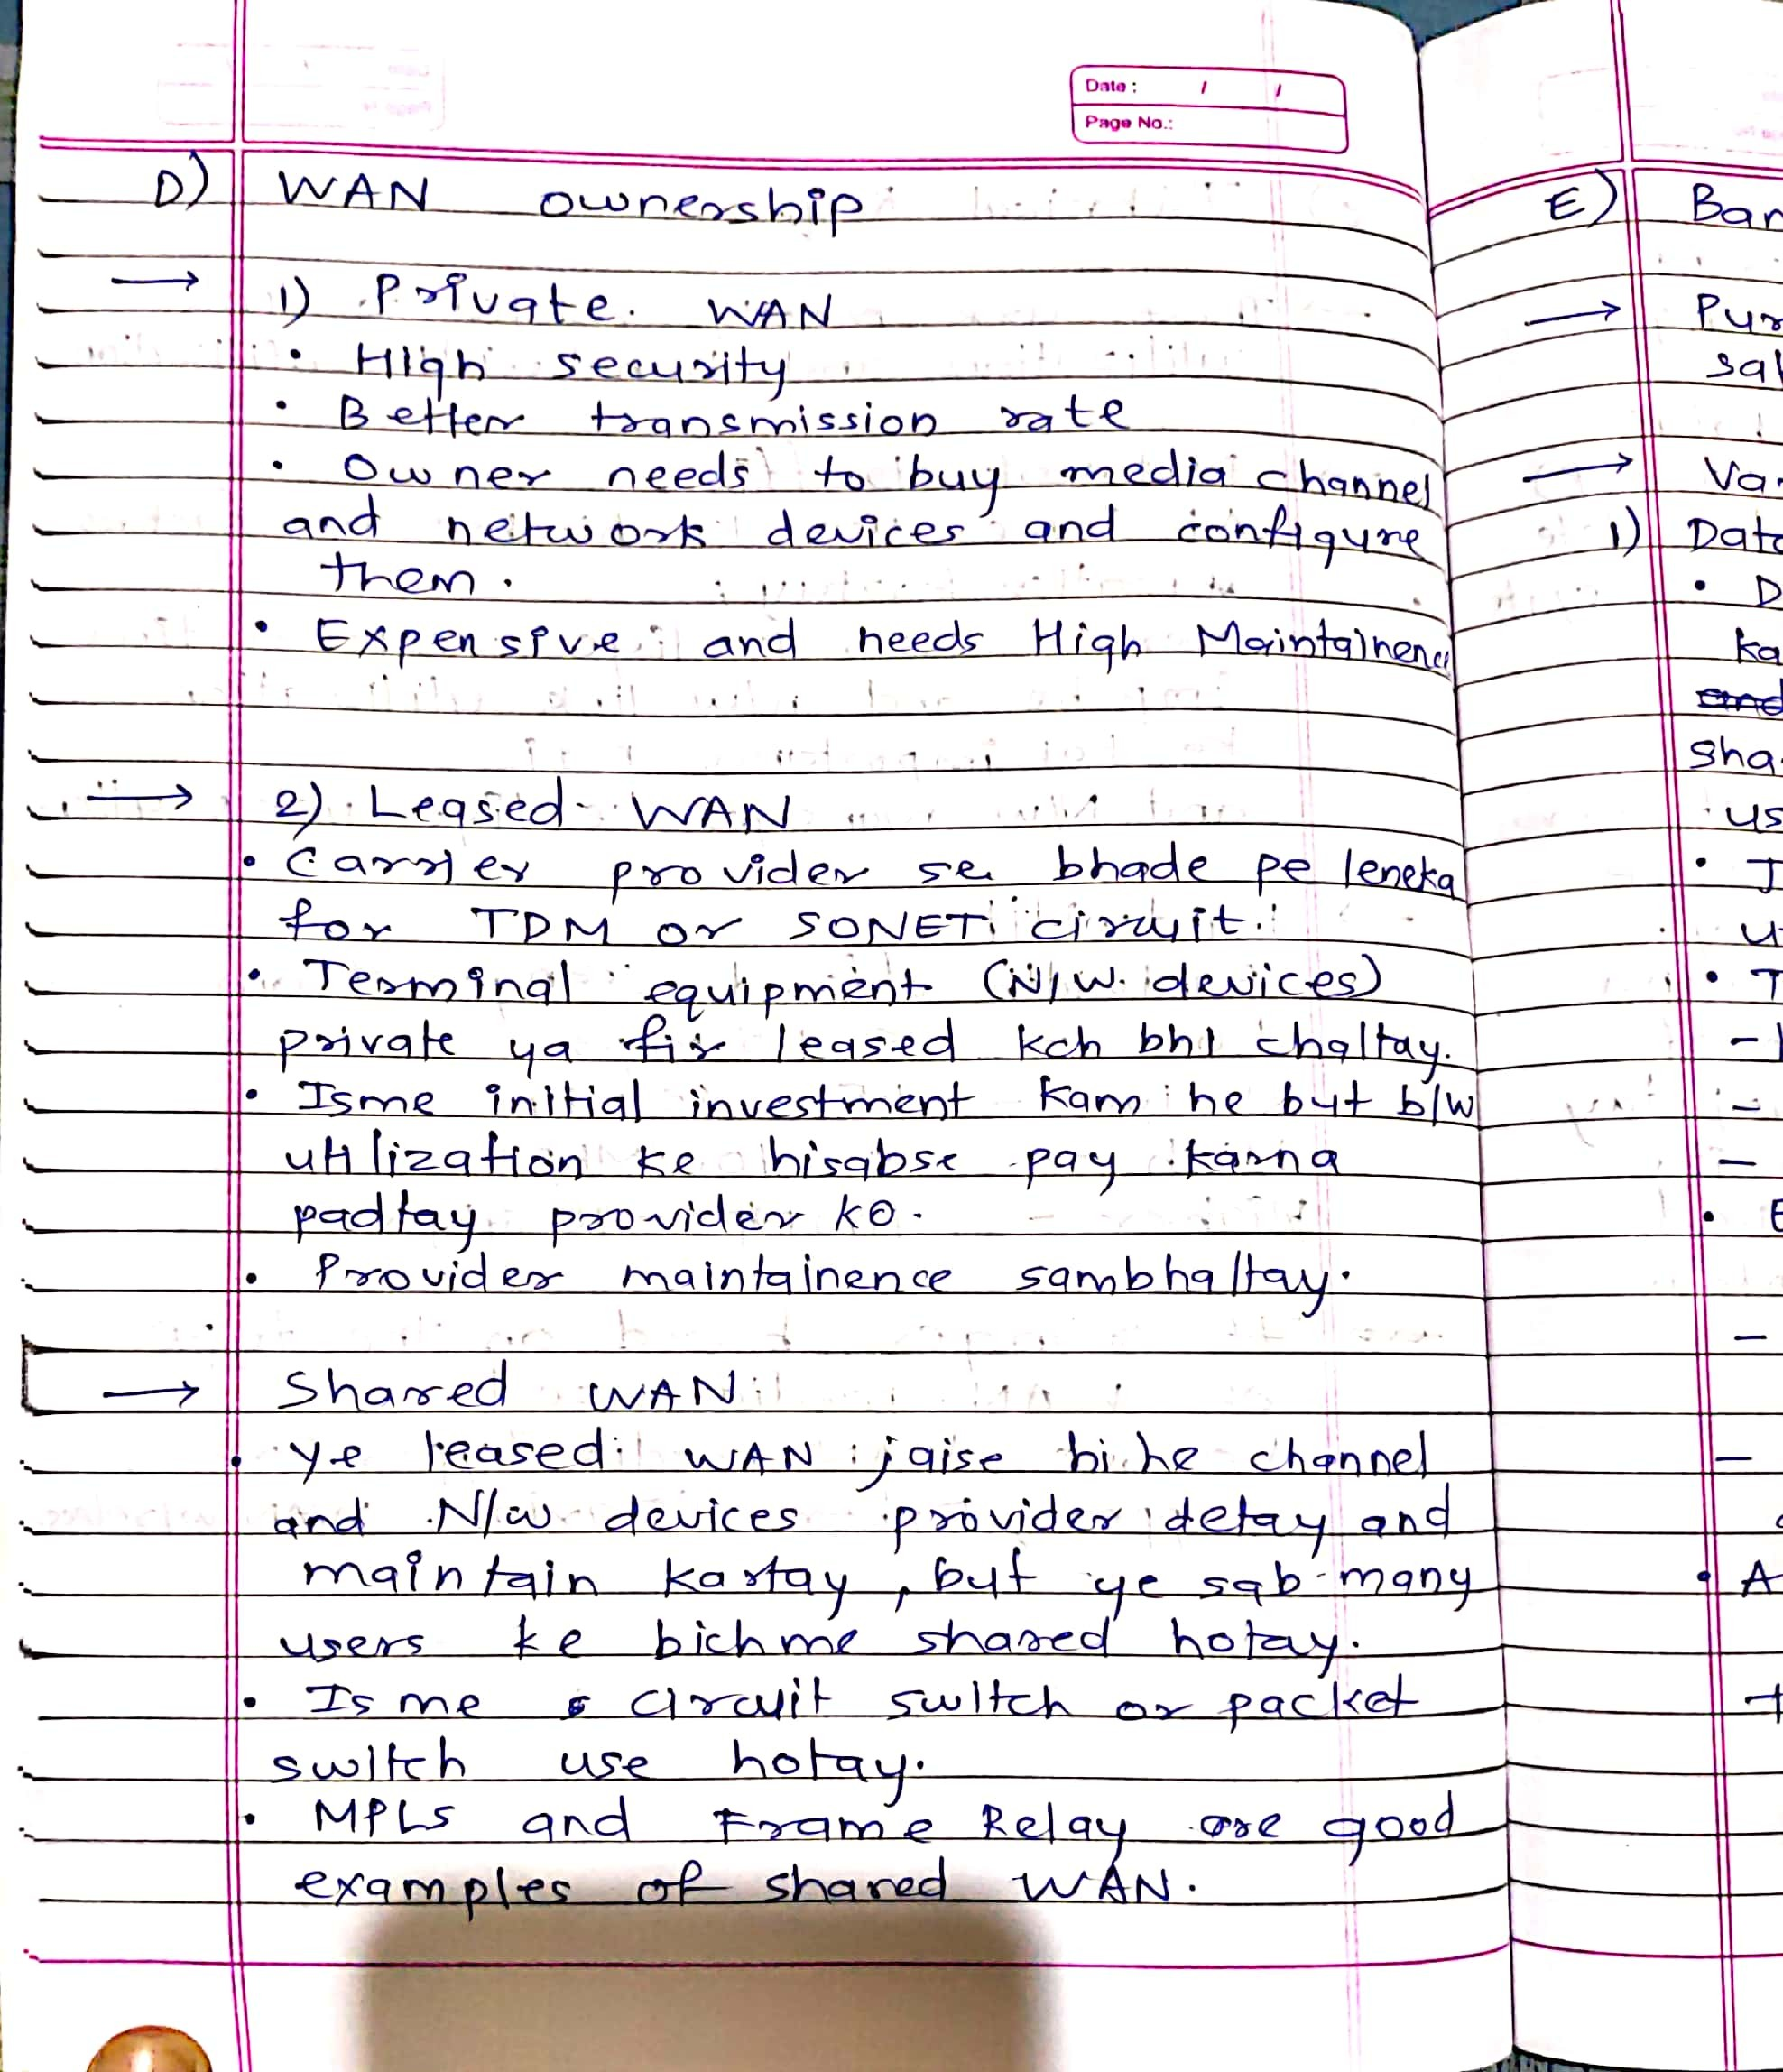 Date : / /
Page No.:
D) WAN ownership
→ 1) Private WAN
• High security
• Better transmission rate
• Owner needs to buy media channel
and network devices and configure
them.
• Expensive and needs High Maintainence
→ 2) Leased WAN
• Carrier provider se bhade pe leneka
for TDM or SONET circuit.
• Terminal equipment (N/W devices)
private ya fir leased kch bhi chaltay.
• Isme initial investment kam he but b/w
utilization ke hisabse pay karna
padtay provider ko.
• Provider maintainence sambhaltay.
→ Shared WAN
• ye leased WAN jaise hi he channel
and N/W devices provider detay and
maintain kartay, but ye sab many
users ke bichme shared hotay.
• Isme circuit switch or packet
switch use hotay.
• MPLS and Frame Relay are good
examples of shared WAN.
E) Ban
→ Pur
sal
→ Va
1) Data
• D
ka
and
sha
us
• I
u
• T
-
-
-
• E
-
-
• A